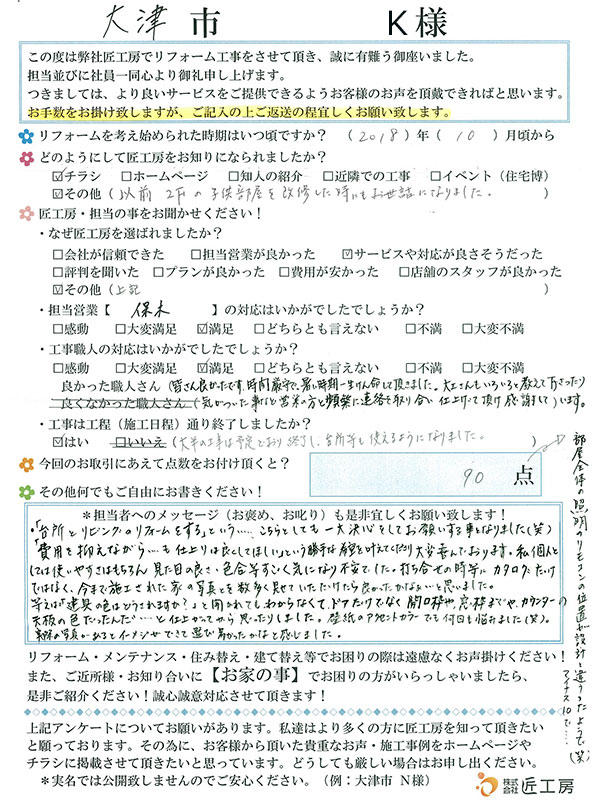 大津 市 K様
この度は弊社匠工房でリフォーム工事をさせて頂き、誠に有難う御座いました。
担当並びに社員一同心より御礼申し上げます。
つきましては、より良いサービスをご提供できるようお客様のお声を頂戴できればと思います。
お手数をお掛け致しますが、ご記入の上ご返送の程宜しくお願い致します。
リフォームを考え始められた時期はいつ頃ですか？ （2018）年（10）月頃から
どのようにして匠工房をお知りになられましたか？
☑チラシ □ホームページ □知人の紹介 □近隣での工事 □イベント（住宅博）
☑その他（以前 2Fの子供部屋を改修した時にもお世話になりました。）
匠工房・担当の事をお聞かせください！
・なぜ匠工房を選ばれましたか？
□会社が信頼できた □担当営業が良かった ☑サービスや対応が良さそうだった
□評判を聞いた □プランが良かった □費用が安かった □店舗のスタッフが良かった
☑その他（上記）
・担当営業【 保木 】の対応はいかがでしたでしょうか？
□感動 □大変満足 ☑満足 □どちらとも言えない □不満 □大変不満
・工事職人の対応はいかがでしたでしょうか？
□感動 □大変満足 ☑満足 □どちらとも言えない □不満 □大変不満
良かった職人さん（皆さん良かったです。時間厳守で、暑い時期一生けん命して頂きました。大工さんもいろいろと教えて下さったり）
良くなかった職人さん（気がついた事など営業の方と頻繁に連絡を取り合い仕上げて頂け感謝しています。
・工事は工程（施工日程）通り終了しましたか？
☑はい □いいえ（大半の工事は予定どおり終了し、台所等も使えるようになりました。）
今回のお取引にあえて点数をお付け頂くと？ 90 点
その他何でもご自由にお書きください！
＊担当者へのメッセージ（お褒め、お叱り）も是非宜しくお願い致します！
・「台所とリビングのリフォームをする」という…こちらとしても一大決心をしてお願いする事となりました(笑)
「費用を抑えながら…も仕上りは良くしてほしい」という勝手な希望を叶えてくださり大変喜んでおります。私個人と
しては使いやすさはもちろん見た目の良さ・色合等すごく気になり不安でした。打ち合せの時等にカタログだけ
ではなく、今まで施工された家の写真とを数多く見せていただけたら良かったかなぁ…と思いました。
「建具の色はどうされますか？」と聞かれてもわからなくて、ドアだけでなく開口枠や、窓枠までや、カウンターの
天板の色だったんだ…と仕上がってから思ったりしました。壁紙のアクセントカラーでも何日も悩みました(笑)。
実際の写真があるとイメージができて選び易かったかなと感じました。
部屋全体の照明のリモコンの位置が設計と違ったようで(笑)
マイナス10で…
リフォーム・メンテナンス・住み替え・建て替え等でお困りの際は遠慮なくお声掛けください！
また、ご近所様・お知り合いに【お家の事】でお困りの方がいらっしゃいましたら、
是非ご紹介ください！誠心誠意対応させて頂きます！
上記アンケートについてお願いがあります。私達はより多くの方に匠工房を知って頂きたい
と願っております。その為に、お客様から頂いた貴重なお声・施工事例をホームページや
チラシに掲載させて頂きたいと思っています。どうしても厳しい場合はお申し出ください。
＊実名では公開致しませんのでご安心ください。（例：大津市 N様）
株式会社 匠工房